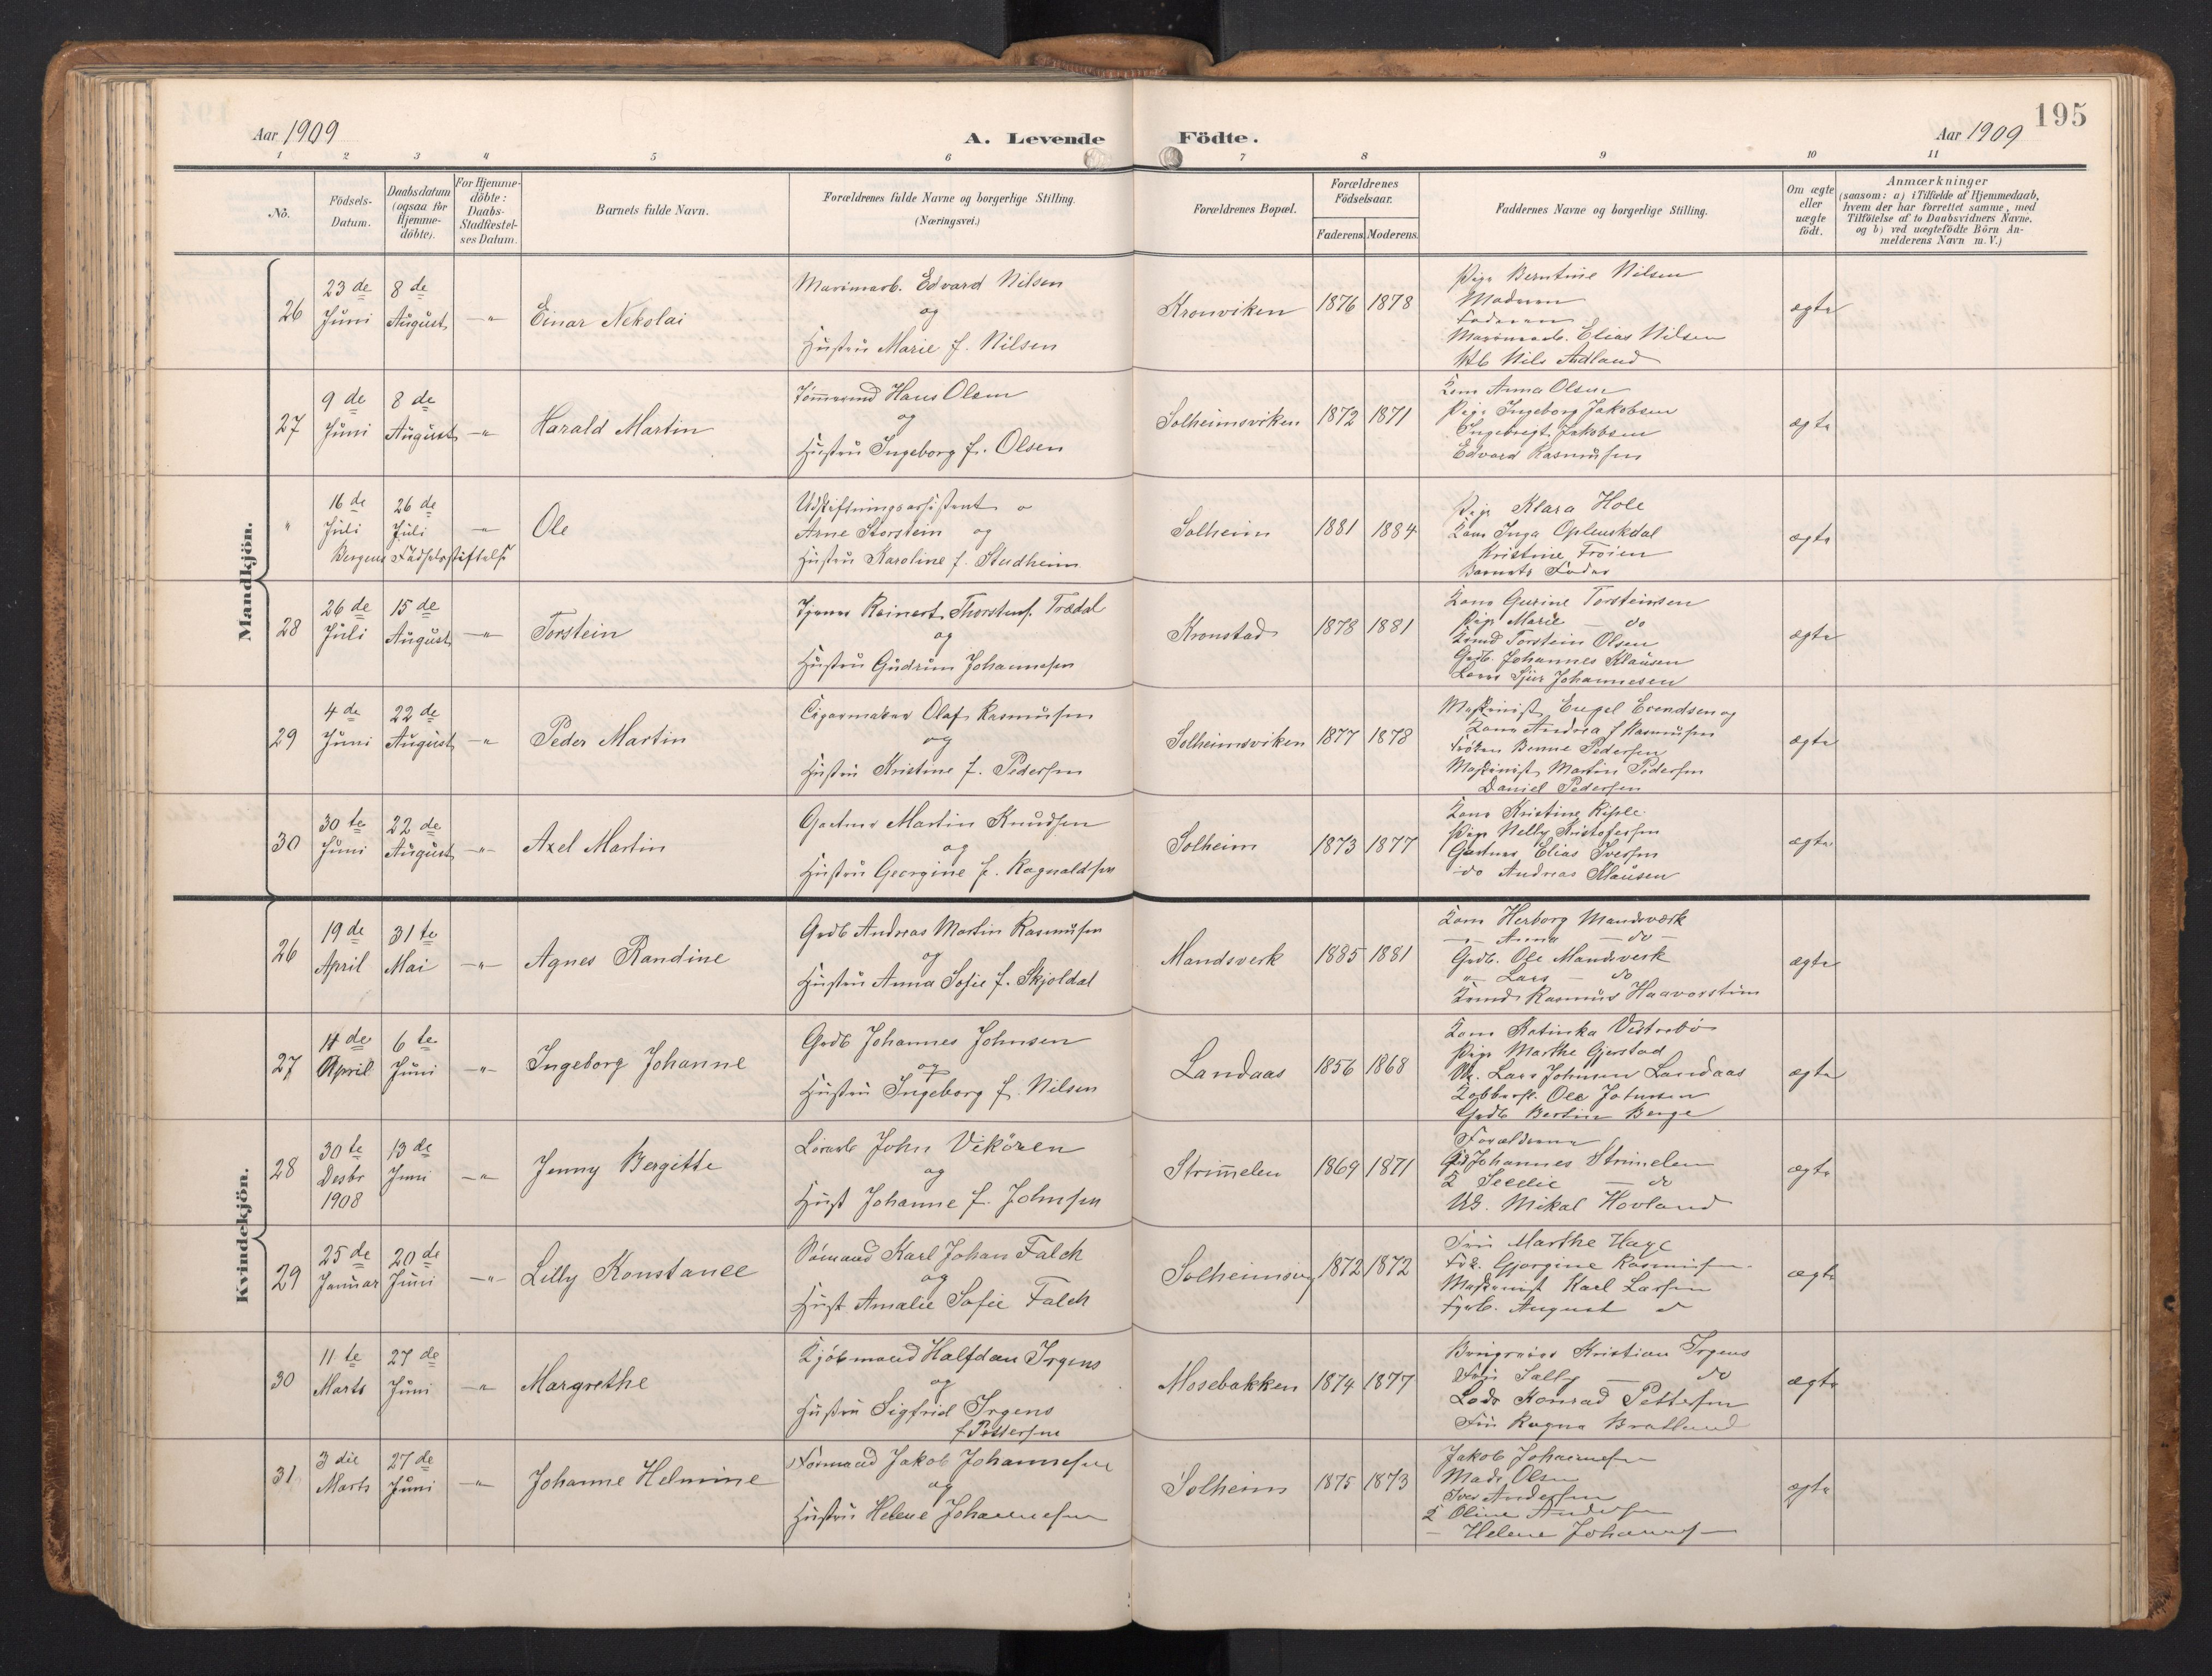 195
Aar 1909
A. Levende Födte.
Aar 1909
1 2 3 4 5 6 7 8 9 10 11
No.
Födsels-Datum.
Daabsdatum (ogsaa for Hjemme-döbte).
For Hjemme-döbte: Daabs-Stadfæstel-ses Datum.
Barnets fulde Navn.
Forældrenes fulde Navne og borgerlige Stilling. (Næringsvei.)
Forældrenes Bopæl.
Forældrenes Födselsaar.
Faderens. Moderens.
Faddernes Navne og borgerlige Stilling.
Om ægte eller uægte födt.
Anmærkninger
(saasom: a) i Tilfælde af Hjemmedaab,
hvem der har forrettet samme, med
Tilföielse af to Daabsvidners Navne,
og b) ved uægtefödte Börn An-
melderens Navn m. V.)
Mandkjön.
26 23de Juni 8de August -"- Einar Nekolai
Edvard Nilsen
og
Hustru Marie f. Nilsen
Kronviken 1876 1878
Pige Berntine Nilsen
Moderen
Faderen
Elias Nilsen
Nils Adland
ægte
27 9de Juni 8de August -"- Harald Martin
Tömmermd Hans Olsen
og
Hustru Ingeborg f. Olsen
Solheimsviken 1872 1871
Kone Anna Olsen
Pige Ingeborg Jakobsen
Ingebregt Jakobsen
Edvard Rasmussen
ægte
" 16de Juli 26de Juli -"- Ole
Bergens Födselsstiftelse
Udskiftningsassistent
Arne Storstein og
Hustru Karoline f. Stadheim
Solheim 1881 1884
Pige Klara Hole
Kone Inga Opheuskdal
Kristine Froien
Barnets Fader
ægte
28 26de Juli 15de August -"- Torstein
Reinert Thorstens. Trædal
og
Hustru Gudrun Johannesen
Kronstad 1878 1881
Kone Gurine Torsteinsen
Pige Marie — do
Torstein Olsen
Grdb. Johannes Klausen
Sjur Johannesen
ægte
29 4de Juni 22de August -"- Peder Martin
Cigarmaker Olaf Rasmussen
og
Hustru Kristine f. Pedersen
Solheimsviken 1877 1878
Maskinist Engel Evendsen og
Kone Andrea f Rasmussen
Fröken Benne Pedersen
Maskinist Martin Pedersen
Daniel Pedersen
ægte
30 30te Juni 22de August -"- Axel Martin
Gartner Martin Knudsen
og
Hustru Georgine f. Ragnaldsen
Solheim 1873 1877
Kone Kristine Riple
Pige Nelly Kristofersen
Gartner Elias Iversen
do Andreas Klausen
ægte
Kvindekjön.
26 19de April 31te Mai -"- Agnes Randine
Grdb Andreas Martin Rasmussen
og
Hustru Anna Sofie f. Skjoldal
Mandsverk 1885 1881
Kone Herborg Mandsværk
-"- Anna — do —
Grdb. Ole Mandsverk
-"- Lars — do
Rasmus Haavorstein
ægte
27 11de April 6te Juni -"- Ingeborg Johanne
Grdb Johannes Johnsen
og
Hustru Ingeborg f. Nilsen
Landaas 1856 1868
Kone Katinka Vestrebö
Pige Marthe Gjerstad
Lars Johnsen Landaas
Kobbersl. Ole Johnsen
Grdb Bertin Berge
ægte
28 30te Desbr 1908 13de Juni -"- Jenny Bergitte
John Vikören
og
Hust Johanne f. Johnsen
Strimmelen 1869 1871
Forældrene
Johannes Strimelen
K — do
Mikal Hovland
ægte
29 25de Januar 20de Juni -"- Lilly Konstance
Sömand Karl Johan Falck
og
Hust Amalie Sofie Falck
Solheimsvig 1872 1872
Fru Marthe Hage
Frk. Gjorgine Rasmussen
Maskinist Karl Larsen
Fyrb. August do
ægte
30 11te Marts 27de Juni -"- Margrethe
Kjöbmand Halfdan Irgens
og
Hustru Sigfrid Irgens
f. Pettersen
Mosebakken 1874 1877
Kristian Irgens
Fru Sally — do
Lods Konrad Pettersen
Fru Ragna Bratland
ægte
31 3die Marts 27de Juni -"- Johanne Helmine
Formand Jakob Johannesen
og
Hustru Helene Johannesen
Solheim 1875 1873
Jakob Johannesen
Mads Olsen
Iver Andersen
K Oline Andersen
— Helene Johannes—
ægte